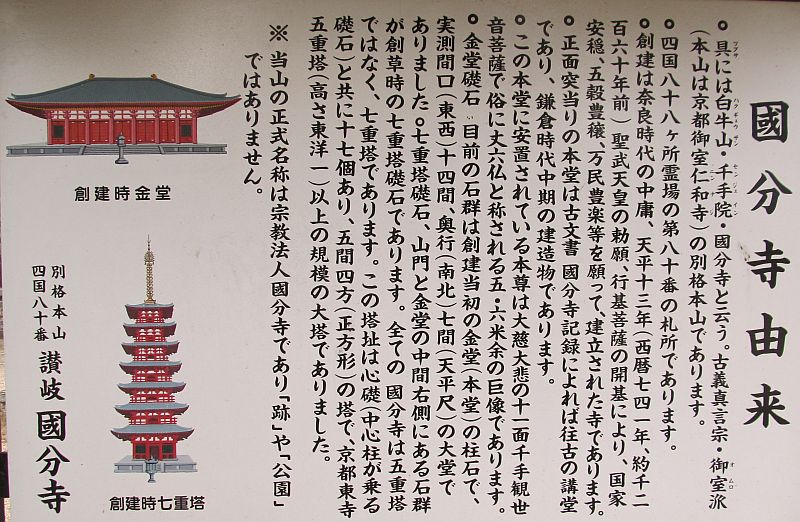 國分寺由来
○具には白牛山・千手院・國分寺と云う。古義真言宗・御室派
ツブサ ハクギュウザン センジュイン オムロ
(本山は京都御室仁和寺)の別格本山であります。
ニンナジ
○四国八十八ヶ所霊場の第八十番の札所であります。
○創建は奈良時代の中庸、天平十三年(西暦七四一年、約千二
百六十年前)聖武天皇の勅願、行基菩薩の開基により、国家
安穏、五穀豊穣、万民豊楽等を願って、建立された寺であります。
○正面突当りの本堂は古文書 國分寺記録によれば往古の講堂
であり、鎌倉時代中期の建造物であります。
○この本堂に安置されている本尊は大慈大悲の十一面千手観世
音菩薩で俗に丈六仏と称される五・六米余の巨像であります。
○金堂礎石 目前の石群は創建当初の金堂(本堂)の柱石で、
実測間口(東西)十四間、奥行(南北)七間(天平尺)の大堂で
ありました。○七重塔礎石、山門と金堂の中間右側にある石群
が創草時の七重塔礎石であります。全ての 國分寺は五重塔
ではなく、七重塔であります。この塔址は心礎(中心柱が乗る
礎石)と共に十七個あり、五間四方(正方形)の塔で、京都東寺
五重塔(高さ東洋一)以上の規模の大塔でありました。
※ 当山の正式名称は宗教法人國分寺であり「跡」や「公園」
ではありません。
創建時金堂
創建時七重塔
別格本山
四国八十番
讃岐 國分寺